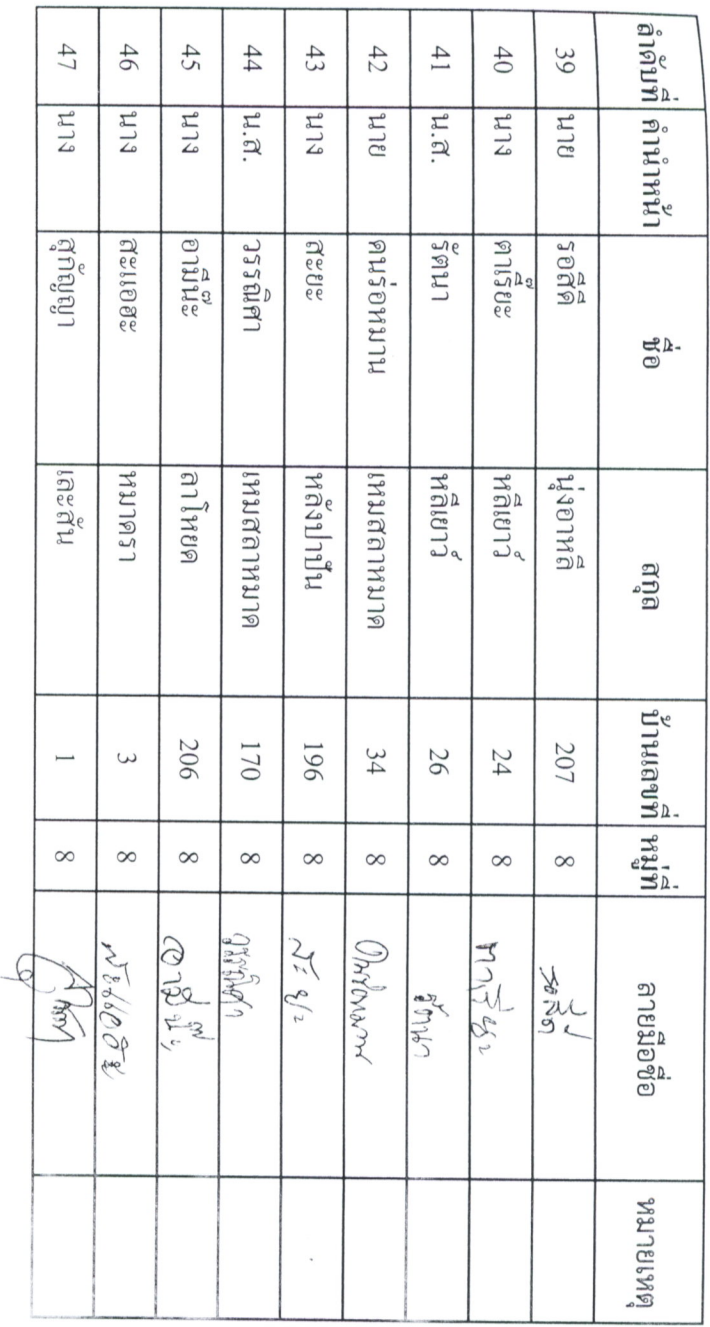 ลำดับที่ คำนำหน้า ชื่อ สกุล บ้านเลขที่ หมู่ที่ ลายมือชื่อ หมายเหตุ
39 นาย รอสีดี นุ่งอาหลี 207 8 รอสีดี
40 นาง ตาเรียะ หลีเยาว์ 24 8
41 น.ส. รัตนา หลีเยาว์ 26 8 รัตนา
42 นาย ดนร่อหมาน เหมสลาหมาด 34 8
43 นาง สะยะ หลังปาปัน 196 8 สะยะ
44 น.ส. วรรณิศา เหมสลาหมาด 170 8 วรรณิศา
45 นาง อามีน๊ะ ลาโหยด 206 8 อามีน๊ะ
46 นาง สะแอฮะ หมาดรา 3 8
47 นาง สุกัญญา เละสัน 1 8